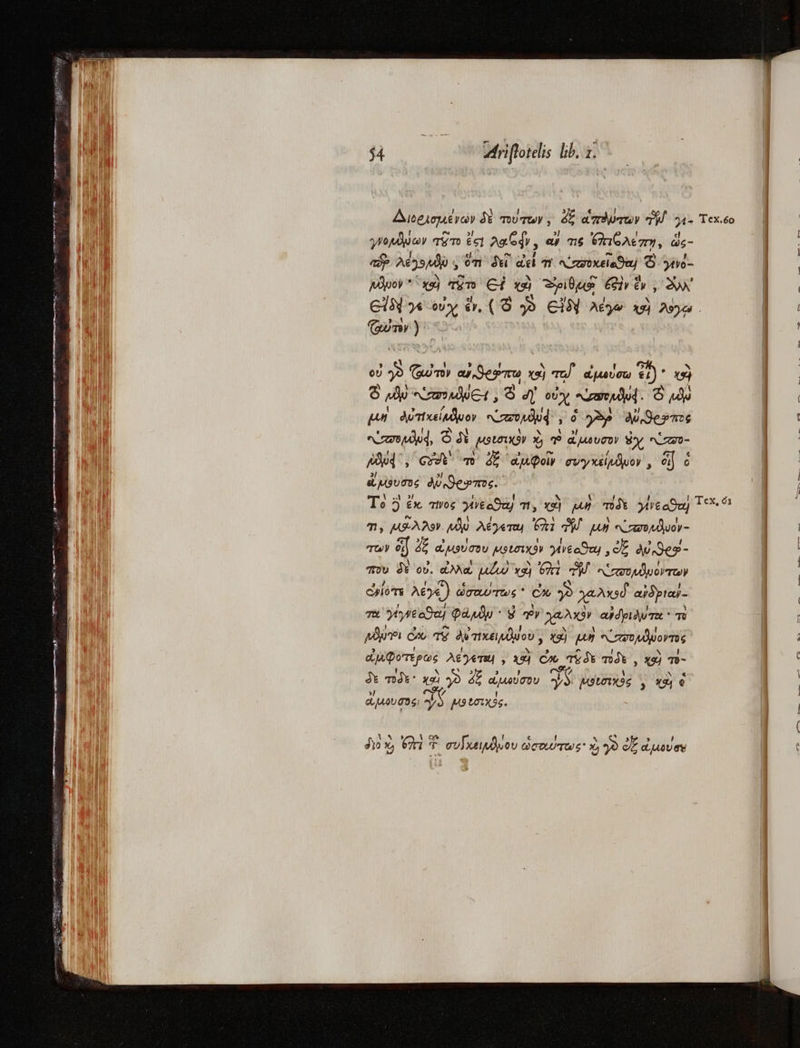 54 Aristotelis lib. 1.
Διορισμένων δὲ τούτων, ἐξ ἁπάντων τῶν γι- Tex.60
γνομένων τοῦτο ἔστι λαβεῖν, ἄν τις ἐπιβλέπῃ, ὥς-
περ λέγομεν, ὅτι δεῖ ἀεί τι ὑποκεῖσθαι τὸ γινό-
μενον· καὶ τοῦτο εἰ καὶ ἀριθμῷ ἐστιν ἕν, ἀλλ'
εἴδει γε οὐχ ἕν. (τὸ γὰρ εἴδει λέγω καὶ λόγῳ
ταὐτόν)
οὐ γὰρ ταὐτὸν ἀνθρώπῳ καὶ τῷ ἀμούσῳ εἶναι· καὶ
τὸ μὲν ὑπομένει, τὸ δ' οὐχ ὑπομένει. τὸ μὲν
μὴ ἀντικείμενον ὑπομένει, ὁ γὰρ ἄνθρωπος
ὑπομένει, τὸ δὲ μουσικὸν καὶ τὸ ἄμουσον οὐχ ὑπο-
μένει, οὐδὲ τὸ ἐξ ἀμφοῖν συγκείμενον, οἷον ὁ
ἄμουσος ἄνθρωπος.
Τὸ δὲ ἔκ τινος γίνεσθαί τι, καὶ μὴ τόδε γίνεσθαί Tex.61
τι, μᾶλλον μὲν λέγεται ἐπὶ τῶν μὴ ὑπομενόν-
των οἷον ἐξ ἀμούσου μουσικὸν γίνεσθαι, ἐξ ἀνθρώ-
που δὲ οὔ. ἀλλὰ μὴν καὶ ἐπὶ τῶν ὑπομενόντων
ἐνίοτε λέγεται ὡσαύτως· ἐκ γὰρ χαλκοῦ ἀνδριάν-
τα γίγνεσθαι φαμὲν· οὐ τὸν χαλκὸν ἀνδριάντα· τὸ
μέντοι ἐκ τοῦ ἀντικειμένου, καὶ μὴ ὑπομένοντος
ἀμφοτέρως λέγεται, καὶ ἐκ τοῦδε τόδε, καὶ τό-
δε τόδε· καὶ γὰρ ἐξ ἀμούσου γίνεται μουσικός, καὶ ὁ
ἄμουσος γίνεται μουσικός.
διὸ καὶ ἐπὶ τοῦ συγκειμένου ὡσαύτως· καὶ γὰρ ἐξ ἀμούσου